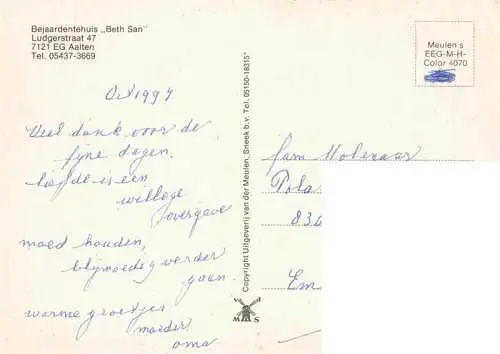 Bejaardentehuis „Beth San"
Ludgerstraat 47
7121 EG Aalten
Tel. 05437-3669
Meulen's
EEG-M-H-
Color 4070
Oct 1994
Veel dank voor de
fijne dagen,
liefde is een
willige
overgave
moed houden,
blijmoedig verder
gaan.
warme groetjes
moeder
oma
Copyright Uitgeverij van der Meulen, Sneek b.v. Tel. 05150-18315*
fam Molenaar
Pola
836
Em
v d
M S